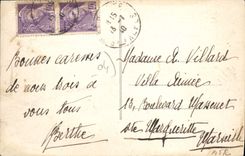 Bonnes caresses
de nous trois à
vous tous
Berthe
Madame A. Villard
Villa Aimée
Boulevard Massenet
Ste Marguerite
Marseille